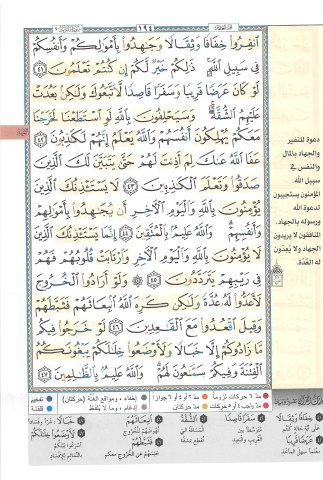 ١٩٤
انفِرُوا خِفَافًا وَثِقَالًا وَجَٰهِدُوا بِأَمْوَٰلِكُمْ وَأَنفُسِكُمْ
فِى سَبِيلِ ٱللَّهِ ذَٰلِكُمْ خَيْرٌ لَّكُمْ إِن كُنتُمْ تَعْلَمُونَ ٤١
لَوْ كَانَ عَرَضًا قَرِيبًا وَسَفَرًا قَاصِدًا لَّٱتَّبَعُوكَ وَلَٰكِنۢ بَعُدَتْ
عَلَيْهِمُ ٱلشُّقَّةُ وَسَيَحْلِفُونَ بِٱللَّهِ لَوِ ٱسْتَطَعْنَا لَخَرَجْنَا
مَعَكُمْ يُهْلِكُونَ أَنفُسَهُمْ وَٱللَّهُ يَعْلَمُ إِنَّهُمْ لَكَٰذِبُونَ ٤٢
عَفَا ٱللَّهُ عَنكَ لِمَ أَذِنتَ لَهُمْ حَتَّىٰ يَتَبَيَّنَ لَكَ ٱلَّذِينَ
صَدَقُوا وَتَعْلَمَ ٱلْكَٰذِبِينَ ٤٣ لَا يَسْتَـْٔذِنُكَ ٱلَّذِينَ
يُؤْمِنُونَ بِٱللَّهِ وَٱلْيَوْمِ ٱلْءَاخِرِ أَن يُجَٰهِدُوا بِأَمْوَٰلِهِمْ
وَأَنفُسِهِمْ وَٱللَّهُ عَلِيمٌۢ بِٱلْمُتَّقِينَ ٤٤ إِنَّمَا يَسْتَـْٔذِنُكَ ٱلَّذِينَ
لَا يُؤْمِنُونَ بِٱللَّهِ وَٱلْيَوْمِ ٱلْءَاخِرِ وَٱرْتَابَتْ قُلُوبُهُمْ فَهُمْ
فِى رَيْبِهِمْ يَتَرَدَّدُونَ ٤٥ وَلَوْ أَرَادُوا ٱلْخُرُوجَ
لَأَعَدُّوا لَهُۥ عُدَّةً وَلَٰكِن كَرِهَ ٱللَّهُ ٱنۢبِعَاثَهُمْ فَثَبَّطَهُمْ
وَقِيلَ ٱقْعُدُوا مَعَ ٱلْقَٰعِدِينَ ٤٦ لَوْ خَرَجُوا فِيكُم
مَّا زَادُوكُمْ إِلَّا خَبَالًا وَلَأَوْضَعُوا خِلَٰلَكُمْ يَبْغُونَكُمُ
ٱلْفِتْنَةَ وَفِيكُمْ سَمَّٰعُونَ لَهُمْ وَٱللَّهُ عَلِيمٌۢ بِٱلظَّٰلِمِينَ ٤٧
دعوة للنفير
والجهاد بالمال
والنفس في
سبيل الله.
المؤمنون يستجيبون
لدعوة الله
ورسوله بالجهاد.
المنافقون لا يريدون
الجهاد ولا يُعدّون
له العُدّة.
مدّ ٦ حركات لزوماً
مدّ ٢ أو ٤ أو ٦ جوازاً
إخفاء، ومواقع الغُنّة (حركتان)
تفخيم
مدّ واجب ٤ أو ٥ حركات
مدّ حركتان
إدغام، وما لا يُلفظ
قلقلة
خِفَافًا وَثِقَالًا
سَفَرًا قَاصِدًا
الشُّقَّةُ
انۢبِعَاثَهُمْ
خَبَالًا
عَرَضًا قَرِيبًا
فَثَبَّطَهُمْ
لَأَوْضَعُوا خِلَالَكُمْ